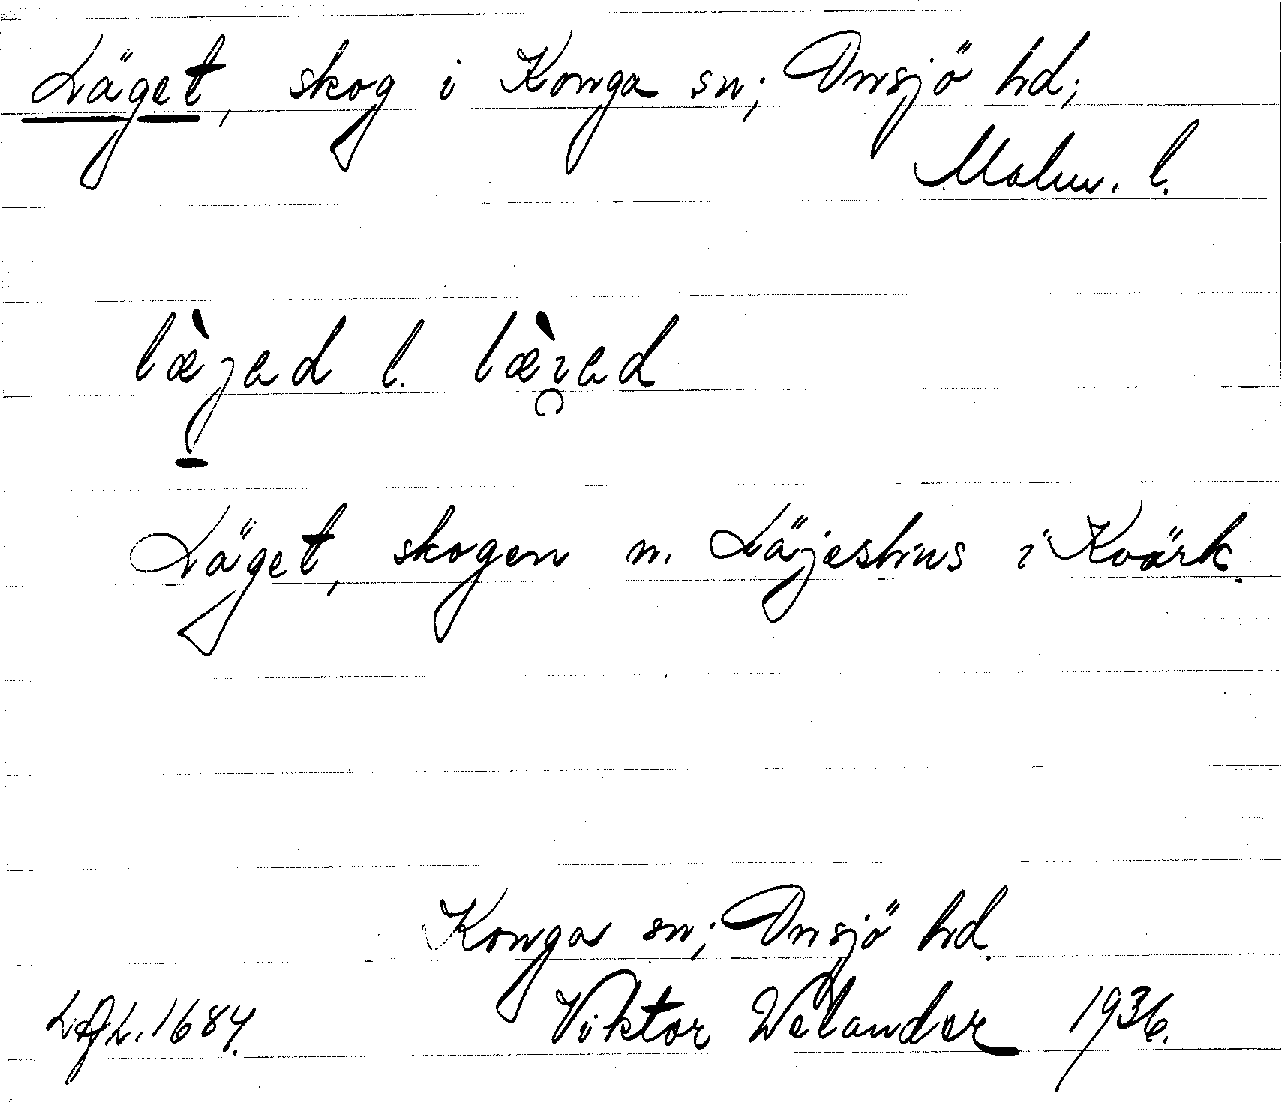 Läget, skog i Konga sn; Onsjö hd;
Malm. l.
læ̀jad l. læ̀i̯ad
Läget, skogen n. Läjeshus i Kvärk.
Konga sn; Onsjö hd.
LAL. 1684. Viktor Welander 1936.